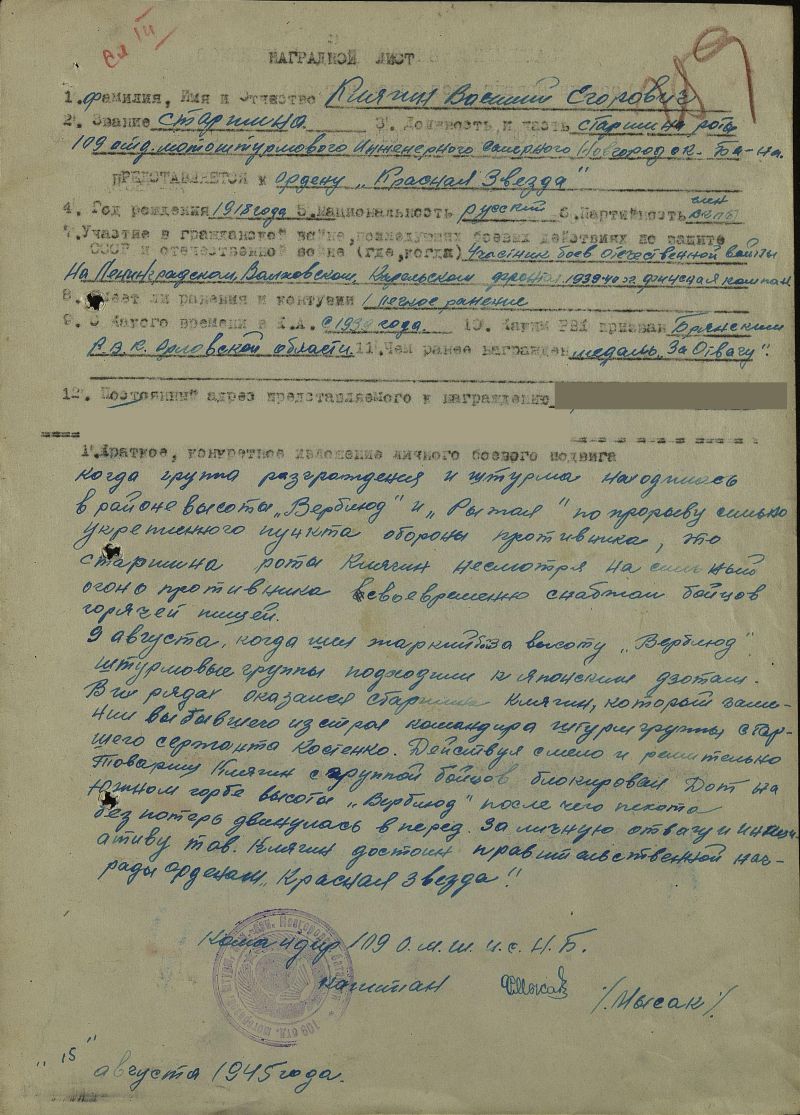 сл III
НАГРАДНОЙ ЛИСТ
1. Фамилия, Имя и Отчество Клягин Василий Егорович
2. Звание Старшина 3. Должность и часть старшина роты
109 отд. мотоштурмового Инженерного Саперного Новгородск. Б-на.
ПРЕДСТАВЛЯЕТСЯ к Ордену "Красная Звезда"
4. Год рождения 1918 года 5. Национальность русский 6. Партийность член ВКПб
7. Участие в гражданской войне, последующих боевых действиях по защите
СССР и отечественной войне (где, когда) Участник боев Отечественной войны
На Ленинградском, Волховском, Карельском фронтах 1939-40 г. финская компан.
8. Имеет ли ранения и контузии 1 легкое ранение
9. С какого времени в К.А. с 1939 года. 10. Каким РВК призван Брянским
Р.В.К. Орловской области. 11. Чем ранее награжден медаль "За Отвагу".
12. Постоянный адрес представляемого к награждению
1. Краткое, конкретное изложение личного боевого подвига
когда группа разграждения и штурма находилась
в районе высоты "Верблюд" и "Рыжая" по прорыву сильно
укрепленного пункта обороны противника, то
старшина роты Клягин несмотря на сильный
огонь противника своевременно снабжал бойцов
горячей пищей.
9 августа, когда шел жаркий бой за высоту "Верблюд"
штурмовые группы подходили к японским дзотам.
В их рядах оказался старшина Клягин, который заме-
нил выбывшего из строя командира штурмгруппы стар-
шего сержанта Костенко. Действуя смело и решительно
Товарищ Клягин с группой бойцов блокировал Дот на
Южном горбе высоты "Верблюд" после чего пехота
без потерь двинулась в перед. За личную отвагу и иници-
ативу тов. Клягин достоин правительственной наг-
рады Орденом "Красная Звезда".
Командир 109 О.М.Ш.И.С.Н.Б.
капитан Мысак /Мысак/
"15"
августа 1945 года.